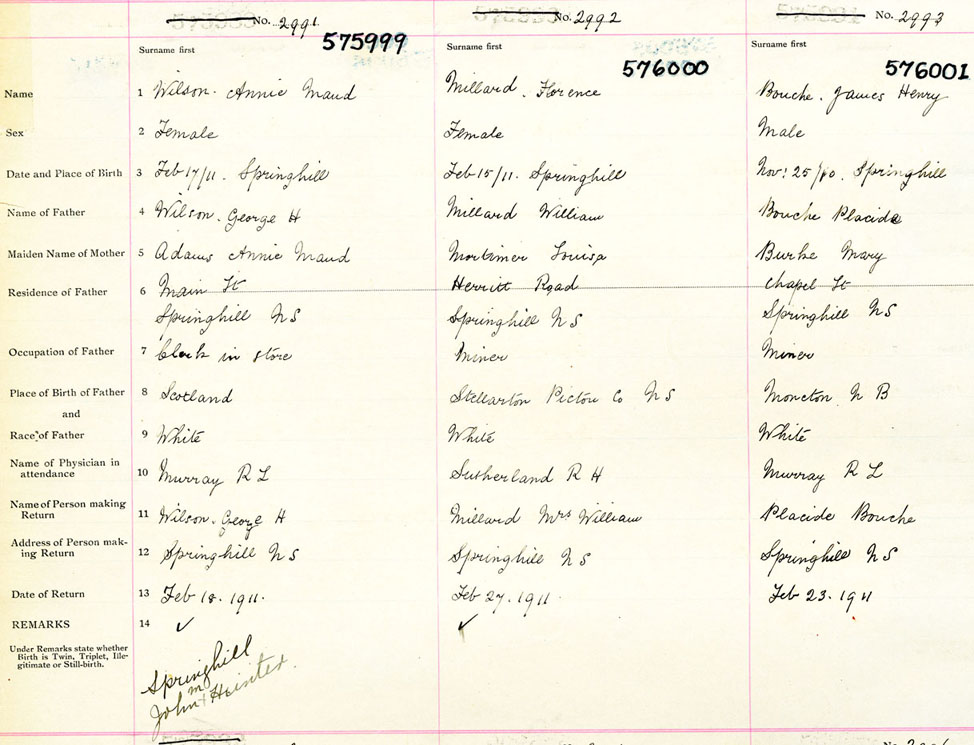 No. 2991
No. 2992
No. 2993
Surname first
575999
Surname first
576000
Surname first
576001
Name
1 Wilson. Annie Maud
Millard. Florence
Bouche. James Henry
Sex
2 Female
Female
Male
Date and Place of Birth
3 Feb 17/11. Springhill
Feb 15/11. Springhill
Nov. 25/10. Springhill
Name of Father
4 Wilson. George H
Millard William
Bouche Placide
Maiden Name of Mother
5 Adams Annie Maud
Mortimer Louisa
Burke Mary
Residence of Father
6 Main St
Springhill N S
Herritt Road
Springhill N S
Chapel St
Springhill N S
Occupation of Father
7 Clerk in store
Miner
Miner
Place of Birth of Father
8 Scotland
Stellarton Pictou Co N S
Moncton N B
and
Race of Father
9 White
White
White
Name of Physician in
attendance
10 Murray R L
Sutherland R H
Murray R L
Name of Person making
Return
11 Wilson. George H
Millard Mrs William
Placide Bouche
Address of Person mak-
ing Return
12 Springhill N S
Springhill N S
Springhill N S
Date of Return
13 Feb 18. 1911.
Feb 27. 1911.
Feb 23. 1911
REMARKS
14 ✓
✓
Under Remarks state whether
Birth is Twin, Triplet, Ille-
gitimate or Still-birth.
Springhill
John